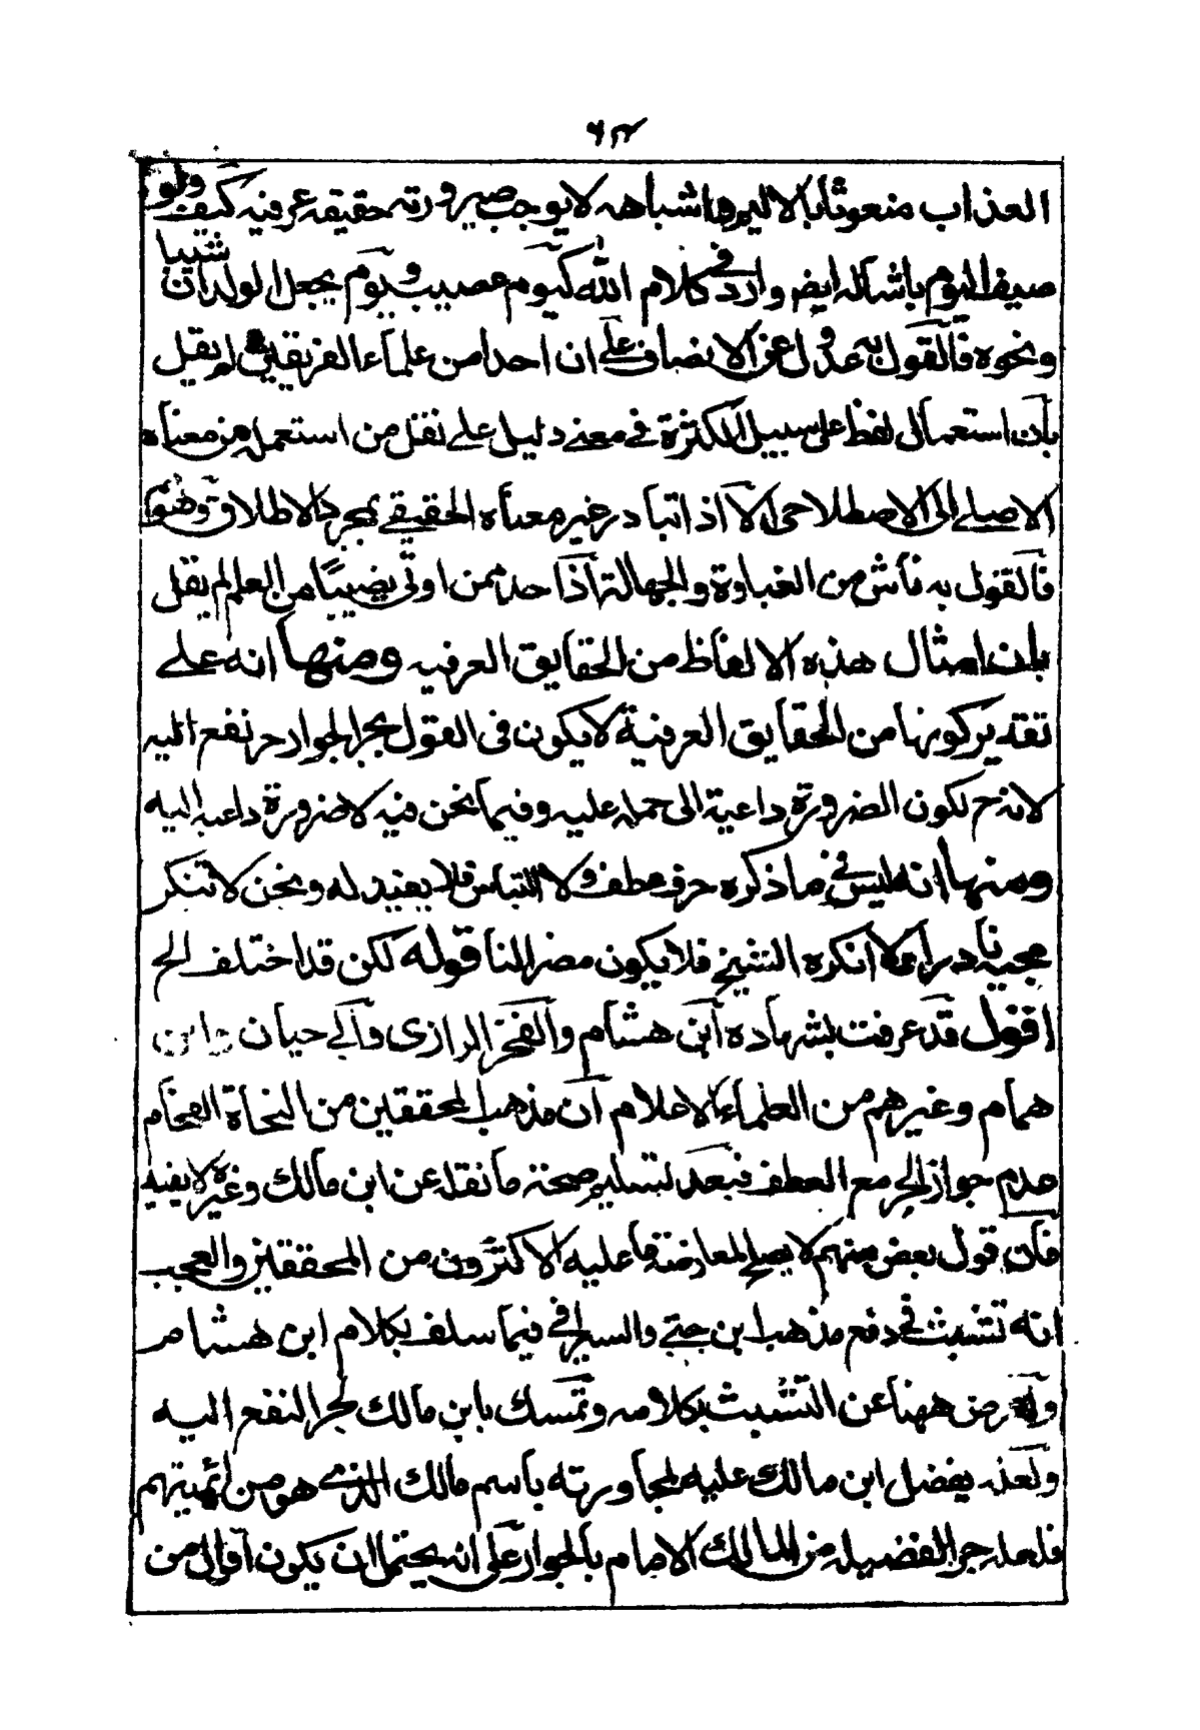 ٦٣
العذاب منعوتا بالاليم واشباهه لا يوجب صيرورته حقيقه عرفيه كيف ولو
صيف اليوم باشاله ايض وارد في كلام الله كيوم عصيب ويوم يجعل الولدان شيبا
ونحوه فالقول به عدول عن الانصاف على ان احدا من علماء الفريقين لم يقل
بان استعمال لفظ على سبيل الكثرة في معنى دليل على نقل من استعمله من معناه
الاصلى الى الاصطلاحى الا اذا تبادر غير معناه الحقيقي بمجرد الاطلاق وهو
فالقول به ناش من الغباوة والجهالة اذ احد ممن اوتى نصيبا من العلم لم يقل
بان امثال هذه الالفاظ من الحقايق العرفيه ومنها انه على
تقدير كونها من الحقايق العرفية لا يكون فى القول بجر الجوار ح نفع اليه
لانه ح تكون الضرورة داعية الى حمله عليه وفيما نحن فيه لا ضرورة داعية اليه
ومنها انه ليس في ما ذكره حرف عطف ولا التباس فلا يفيد له ونحن لا ننكر
مجيئه نادرا كما انكره الشيخ فلا يكون مضرا لنا قوله لكن قد اختلف الخ
اقول قد عرفت بشهادة ابن هشام والفخر الرازى وابي حيان وابن
همام وغيرهم من العلماء الاعلام ان مذهب المحققين من النحاة الفخام
عدم جواز الجر مع العطف فبعد تسليم صحة ما نقله عن ابن مالك وغيره لا يفيد
فان قول بعض منهم لا يصلح لمعارضة ما عليه الاكثرون من المحققين والعجب
انه تشبث في دفع مذهب ابن جني والسيرافي فيما سلف بكلام ابن هشام
واعرض ههنا عن التشبث بكلامه وتمسك بابن مالك لجر النفع اليه
ولعله يفضل ابن مالك عليه لمجاورته باسم مالك الذي هو من ائمتهم
فلعله جر الفضيله من المالك الامام بالجوار على انه يحتمل ان يكون اقوال من